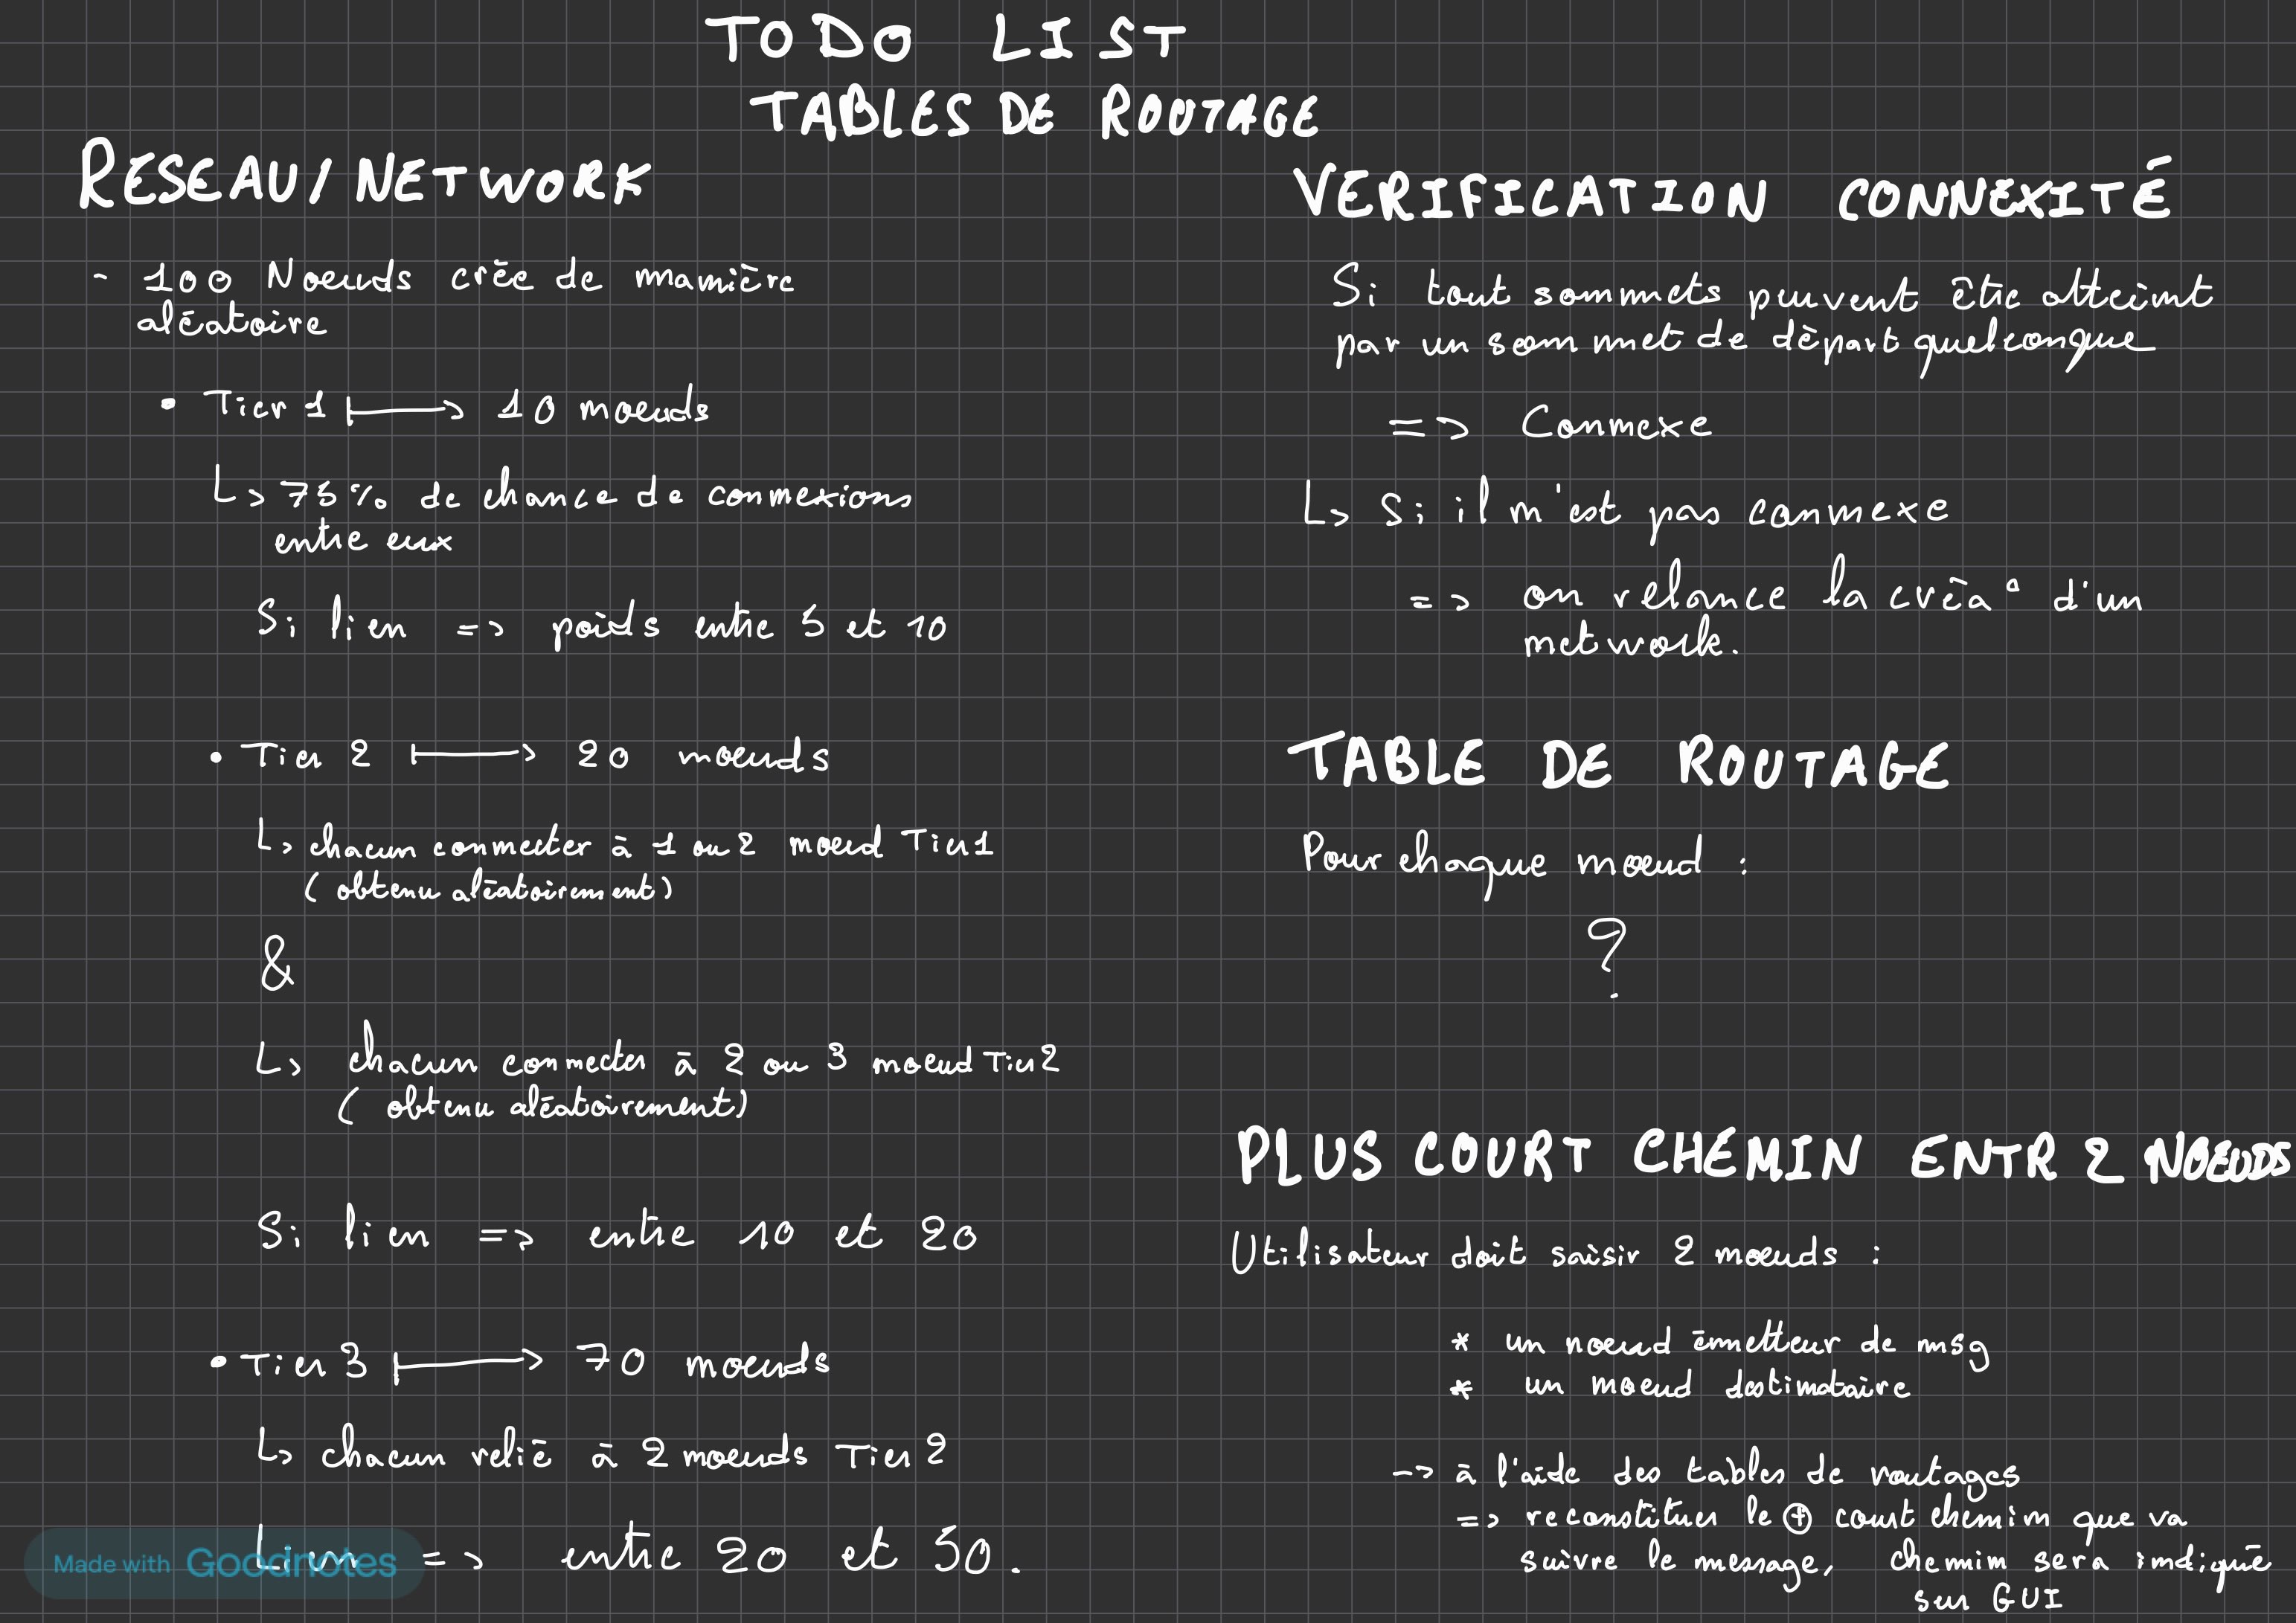 TODO LIST
TABLES DE ROUTAGE
RESEAU/NETWORK
- 100 Noeuds crée de manière
aléatoire
• Tier 1 |⟶ 10 noeuds
↳ 75% de chance de connexions
entre eux
Si lien => poids entre 5 et 10
• Tier 2 |⟶ 20 noeuds
↳ chacun connecter à 1 ou 2 noeud Tier 1
(obtenu aléatoirement)
&
↳ chacun connecter à 2 ou 3 noeud Tier 2
(obtenu aléatoirement)
Si lien => entre 10 et 20
• Tier 3 |⟶ 70 noeuds
↳ chacun relié à 2 noeuds Tier 2
Lien => entre 20 et 50.
VERIFICATION CONNEXITÉ
Si tout sommets peuvent être atteint
par un sommet de départ quelconque
=> Connexe
↳ Si il n'est pas connexe
=> on relance la créa° d'un
network.
TABLE DE ROUTAGE
Pour chaque noeud :
?
PLUS COURT CHEMIN ENTR 2 NOEUDS
Utilisateur doit saisir 2 noeuds :
* un noeud émetteur de msg
* un noeud destinataire
-> à l'aide des tables de routages
=> reconstituer le ⊕ court chemin que va
suivre le message, chemin sera indiqué
sur GUI
Made with Goodnotes